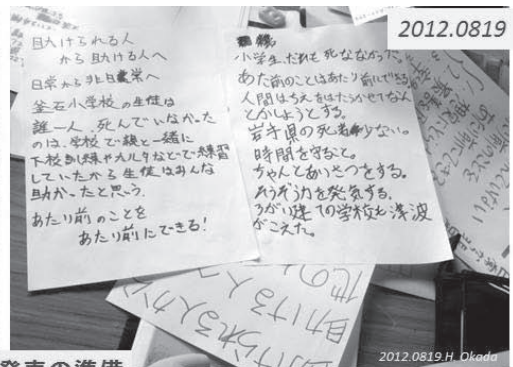 2012.0819
助けられる人
から助ける人へ
日常から非日常へ
釜石小学校の生徒は
誰一人、死んでいなかった
のは、学校で親と一緒に
下校訓練やカルタなどで練習
していたから生徒はみんな
助かったと思う。
あたり前のことを
あたり前にできる!
小学生、だれも死ななかった。
あたり前のことはあたり前にできる
人間はちえをはたらかせてなん
とかしようとする。
岩手県の死者少ない。
時間を守ること。
ちゃんとあいさつをする。
そうぞう力を発気する。
3がい建ての学校を津波
がこえた。
助ける人
られる人から
2012.0819.H. Okada
発表の準備